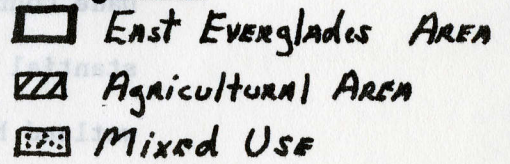 East Everglades Area
Agricultural Area
Mixed Use